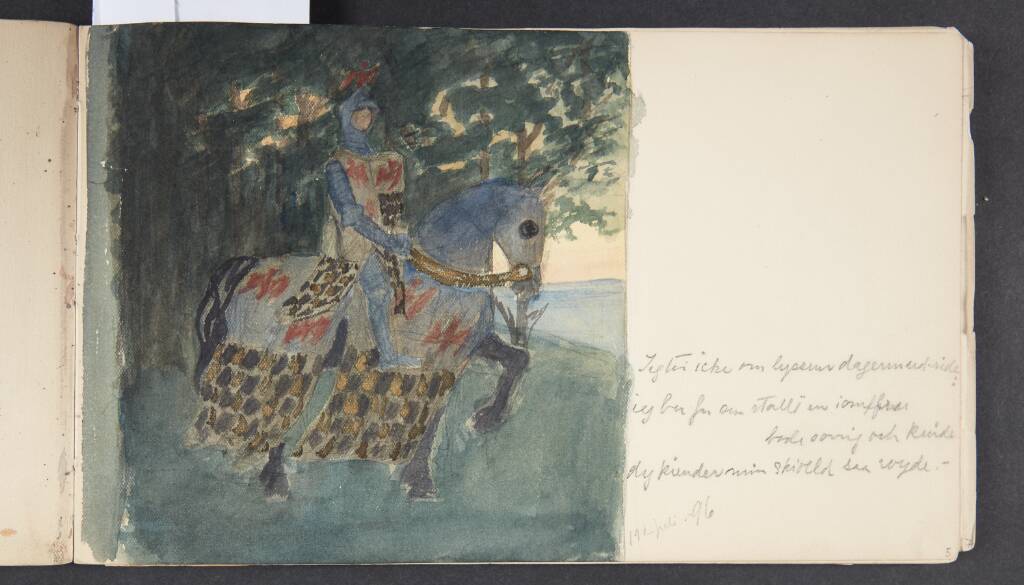 Jeg tør icke om lysenn dagenn ud ride
ieg ber for om stallt en iomfru
bode sorrig och kinde
dy kiender min skiolld saa wyde.-
19 juli 96
5